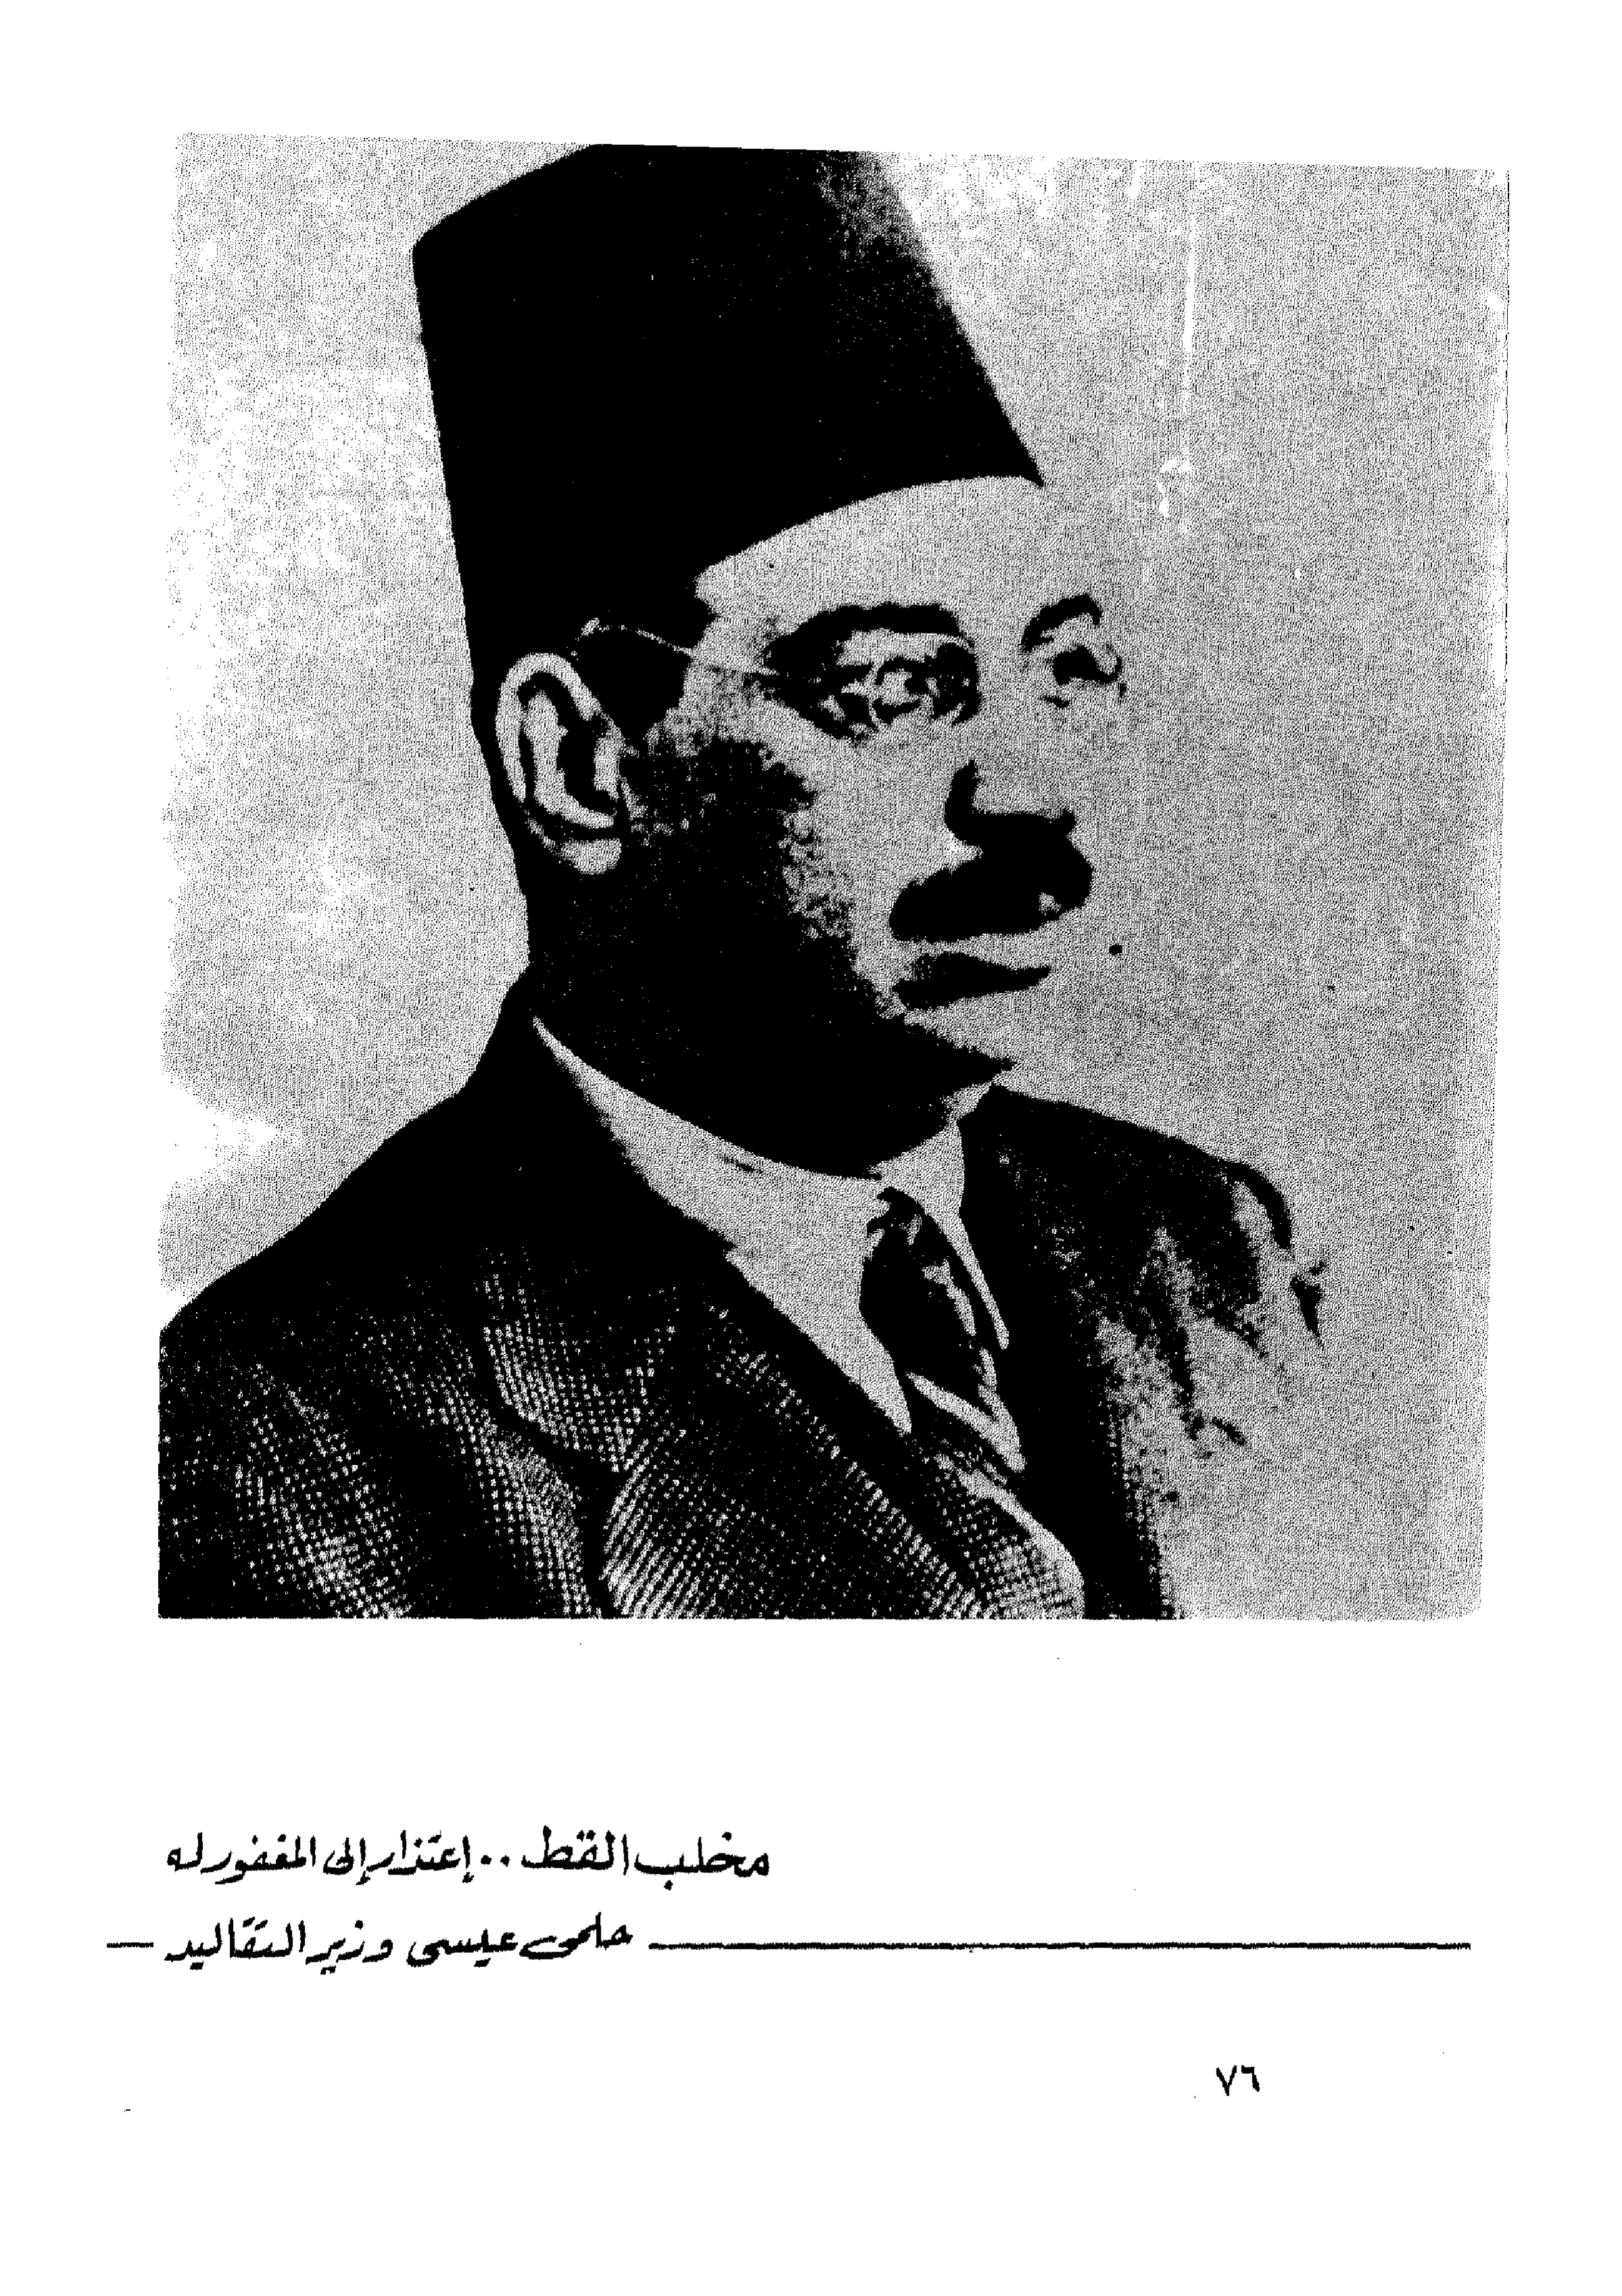 مخلب القط .. إعتذار إلى المغفور له
حلمى عيسى وزير التقاليد
٧٦